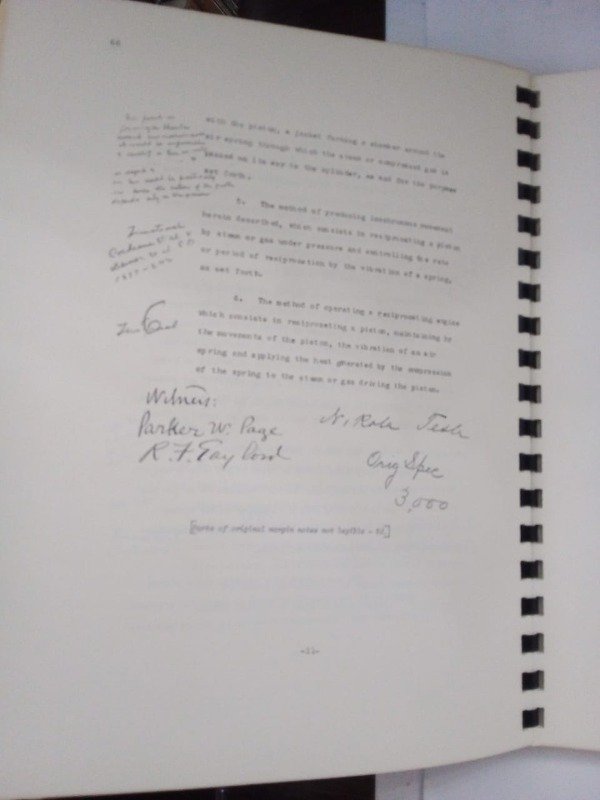 66
with the piston, a jacket forming a chamber around the
air spring through which the steam or compressed gas is
passed on its way to the cylinder, as and for the purpose
set forth.
5. The method of producing isochronous movement
herein described, which consists in reciprocating a piston
by steam or gas under pressure and controlling the rate
or period of reciprocation by the vibration of a spring,
as set forth.
6. The method of operating a reciprocating engine
which consists in reciprocating a piston, maintaining by
the movements of the piston, the vibration of an air
spring and applying the heat generated by the compression
of the spring to the steam or gas driving the piston.
Witness:
Parker W. Page
R. F. Gaylord
Nikola Tesla
Orig Spec
3,000
[Parts of original margin notes not legible - Ed]
-11-